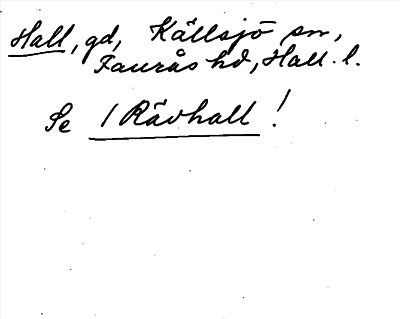 Hall, gd, Källsjö sn,
Faurås hd, Hall. l.
Se 1 Rävhall !